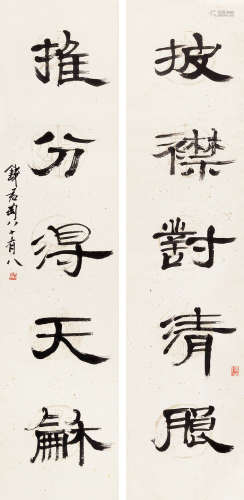 披襟對清賜
推分得天龢
錢君匋八十有八